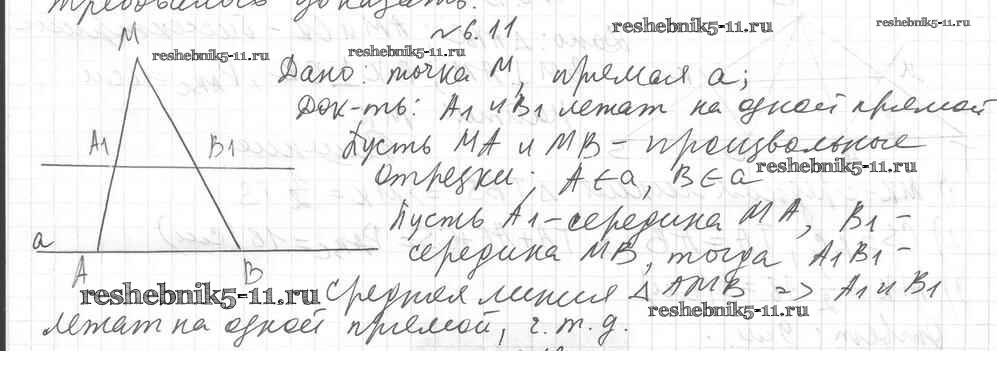 требовалось доказать.
№6.11.
reshebnik5-11.ru
reshebnik5-11.ru
M
reshebnik5-11.ru
reshebnik5-11.ru
Дано: точка M, прямая a;
Док-ть: A1 и B1 лежат на одной прямой
A1 B1
Пусть MA и MB – произвольные
reshebnik5-11.ru
отрезки; A ∈ a, B ∈ a
Пусть A1 – середина MA, B1 –
a
середина MB, тогда A1B1 –
A B
reshebnik5-11.ru
средняя линия △AMB => A1 и B1
reshebnik5-11.ru
лежат на одной прямой, ч.т.д.